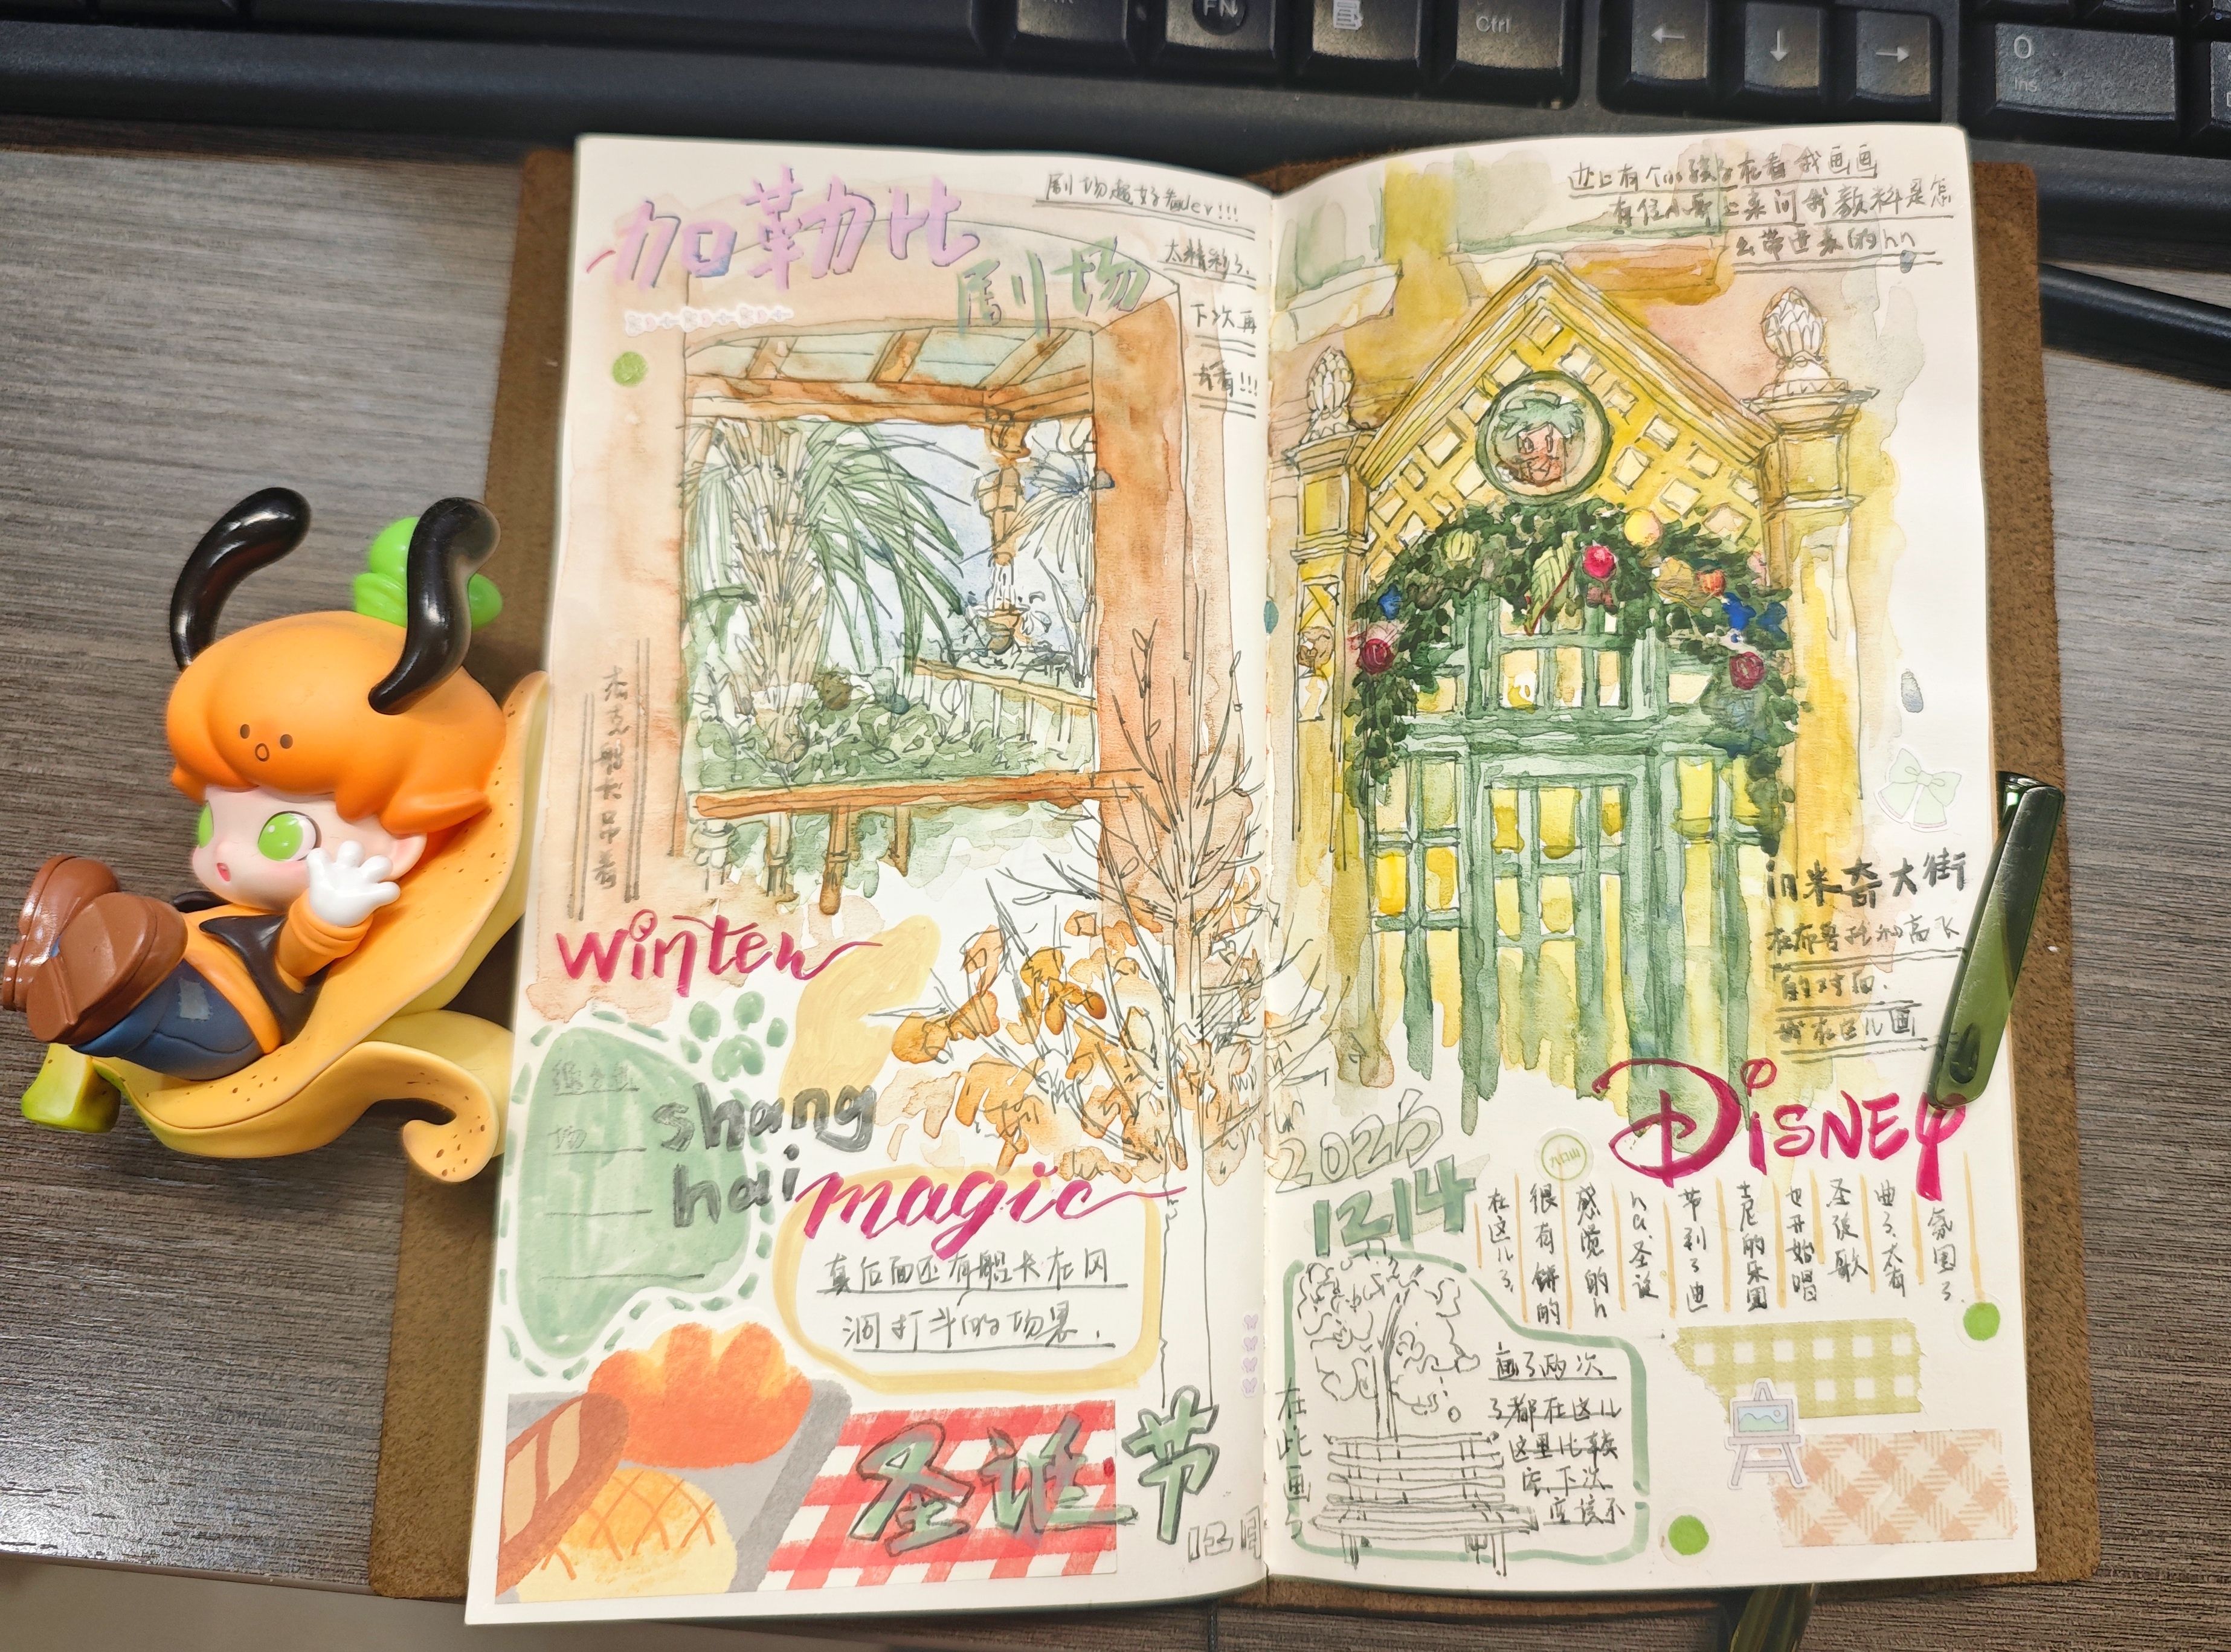 FN
Ctrl
←
↓
→
0
Ins
加勒比
剧场
剧场超好看der!!!
太精彩了.
下次再
去看!!!
杰克船长吊着
winter
shang
hai
magic
真后面还有船长在风
洞打斗的场景.
圣诞节
12月
还有个小孩子在看我画画
有位小哥上来问我颜料是怎
么带进来的hh
in米奇大街
在布鲁托和高飞
的对面.
我在这儿画
DISNEY
12/4
氛围了.
曲了,太有
圣诞歌
也开始唱
士尼的乐园
节到了迪
ha.圣诞
感觉的h
很有饼的
在这儿了
画了两次
了都在这儿
这里比较
下次
应该不
在此画